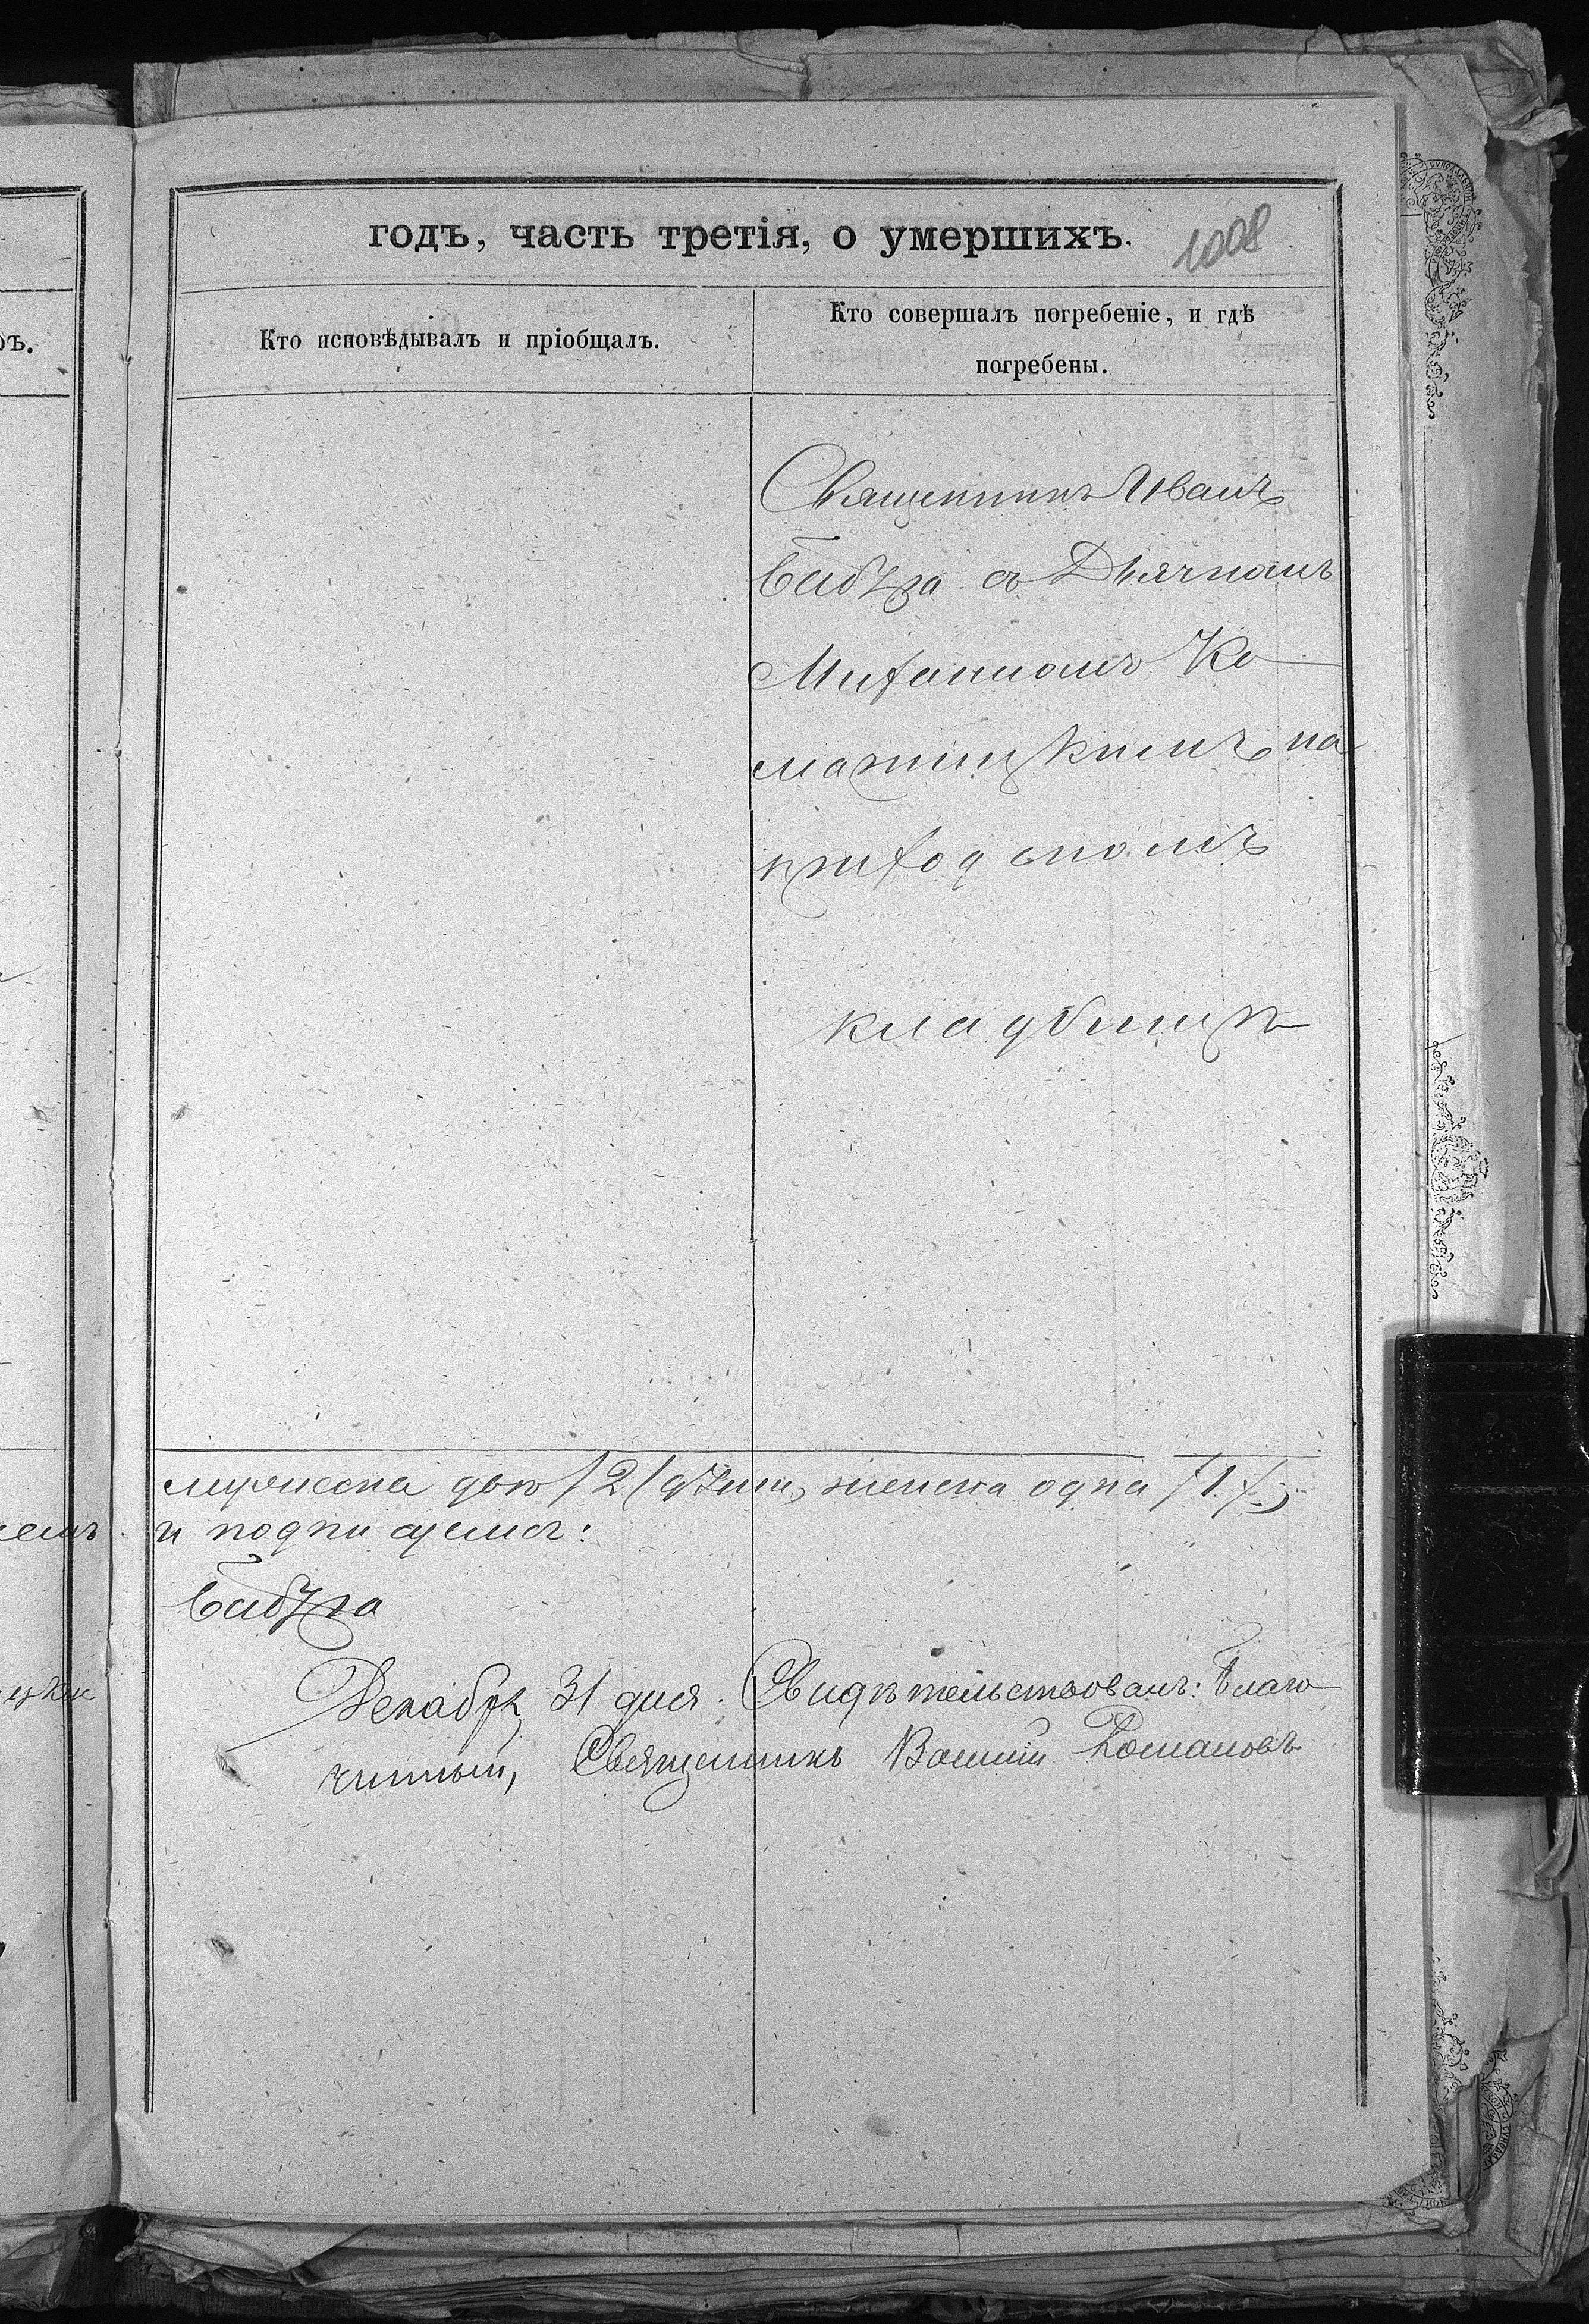 годъ, часть третія, о умершихъ.
1008
Кто исповѣдывалъ и пріобщалъ.
Кто совершалъ погребеніе, и гдѣ
погребены.
Священникъ Иванъ
Бабура съ Дьячкомъ
Митаниомъ Ко
мажицкимъ на
приходскомъ
кладбищѣ
мужеска двѣ /2/ души, женска одна /1/,
и подписуемся:
Бабура
Декабря 31 дня. Свидѣтельствовалъ: Благо
чинный, Священникъ Романовъ